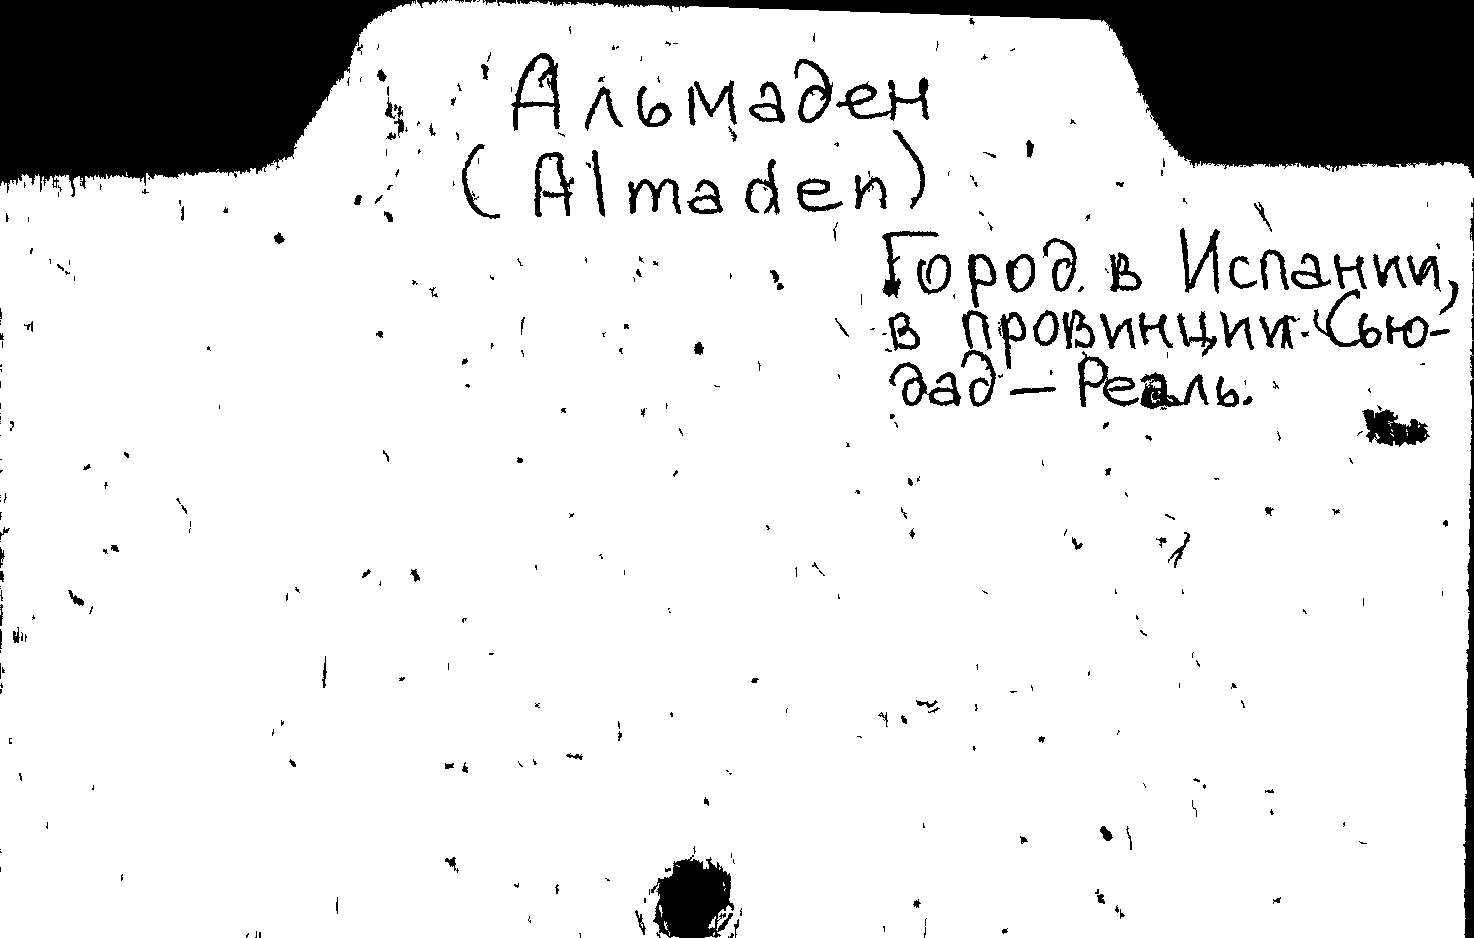 Альмаден
(Almaden)
Город в Испании,
в провинции Сью-
дад — Реаль.